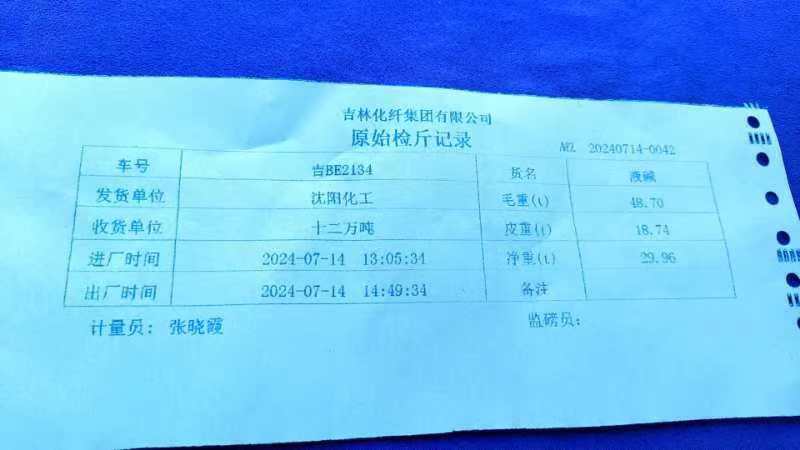 吉林化纤集团有限公司
原始检斤记录
20240714-0042
车号 吉BE2134 货名 液碱
发货单位 沈阳化工 毛重(t) 48.70
收货单位 十二万吨 皮重(t) 18.74
进厂时间 2024-07-14 13:05:34 净重(t) 29.96
出厂时间 2024-07-14 14:49:34 备注
计量员: 张晓霞 监磅员: